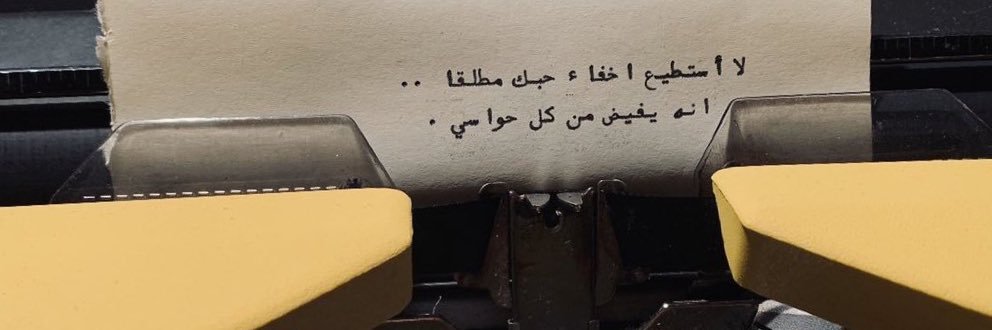 لا أستطيع اخفاء حبك مطلقا ..
انه يفيض من كل حواسي .